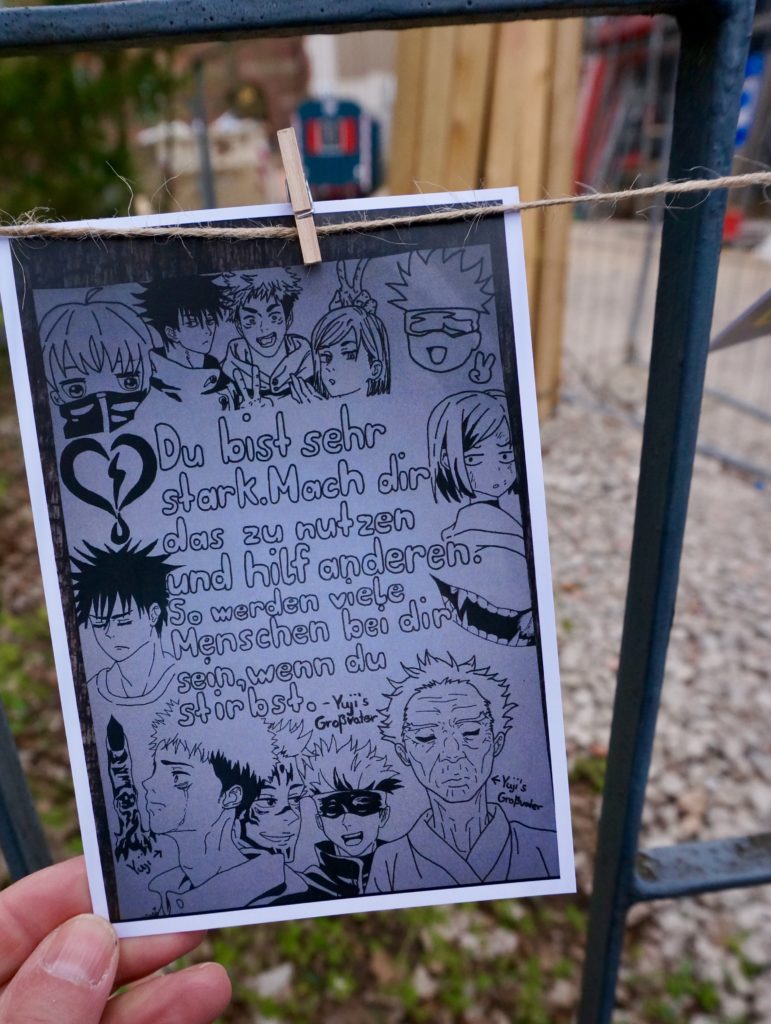 Du bist sehr
stark. Mach dir
das zu nutzen
und hilf anderen.
So werden viele
Menschen bei dir
sein, wenn du
stirbst. - Yuji's
Großvater
← Yuji's
Großvater
Yuji →